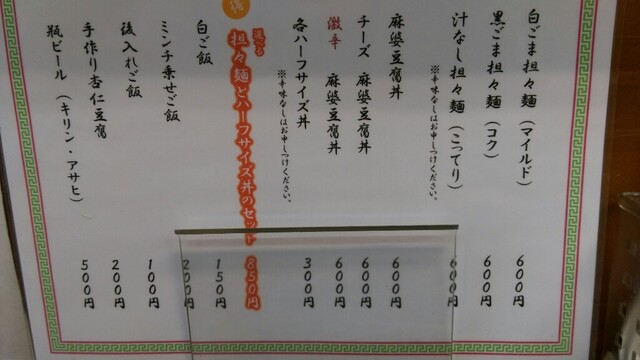 白ごま担々麺（マイルド） 600円
黒ごま担々麺（コク） 600円
汁なし担々麺（こってり） 600円
※辛味なしはお申しつけください。
麻婆豆腐丼 600円
チーズ 麻婆豆腐丼 600円
激辛 麻婆豆腐丼 600円
各ハーフサイズ丼 300円
※辛味なしはお申しつけください。
選べる
担々麺とハーフサイズ丼のセット 850円
白ご飯 150円
ミンチ乗せご飯 200円
後入れご飯 100円
手作り杏仁豆腐 200円
瓶ビール（キリン・アサヒ） 500円